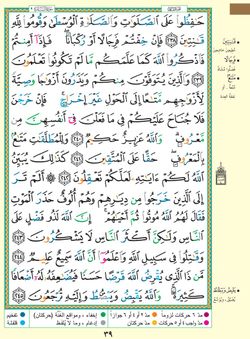 حَٰفِظُوا۟ عَلَى ٱلصَّلَوَٰتِ وَٱلصَّلَوٰةِ ٱلْوُسْطَىٰ وَقُومُوا۟ لِلَّهِ
قَٰنِتِينَ ٢٣٨ فَإِنْ خِفْتُمْ فَرِجَالًا أَوْ رُكْبَانًا فَإِذَآ أَمِنتُمْ
فَٱذْكُرُوا۟ ٱللَّهَ كَمَا عَلَّمَكُم مَّا لَمْ تَكُونُوا۟ تَعْلَمُونَ
٢٣٩ وَٱلَّذِينَ يُتَوَفَّوْنَ مِنكُمْ وَيَذَرُونَ أَزْوَٰجًا وَصِيَّةً
لِّأَزْوَٰجِهِم مَّتَٰعًا إِلَى ٱلْحَوْلِ غَيْرَ إِخْرَاجٍ فَإِنْ خَرَجْنَ
فَلَا جُنَاحَ عَلَيْكُمْ فِى مَا فَعَلْنَ فِىٓ أَنفُسِهِنَّ مِن
مَّعْرُوفٍ وَٱللَّهُ عَزِيزٌ حَكِيمٌ ٢٤٠ وَلِلْمُطَلَّقَٰتِ مَتَٰعٌۢ
بِٱلْمَعْرُوفِ حَقًّا عَلَى ٱلْمُتَّقِينَ ٢٤١ كَذَٰلِكَ يُبَيِّنُ
ٱللَّهُ لَكُمْ ءَايَٰتِهِۦ لَعَلَّكُمْ تَعْقِلُونَ ٢٤٢ أَلَمْ تَرَ
إِلَى ٱلَّذِينَ خَرَجُوا۟ مِن دِيَٰرِهِمْ وَهُمْ أُلُوفٌ حَذَرَ ٱلْمَوْتِ
فَقَالَ لَهُمُ ٱللَّهُ مُوتُوا۟ ثُمَّ أَحْيَٰهُمْ إِنَّ ٱللَّهَ لَذُو فَضْلٍ عَلَى
ٱلنَّاسِ وَلَٰكِنَّ أَكْثَرَ ٱلنَّاسِ لَا يَشْكُرُونَ ٢٤٣
وَقَٰتِلُوا۟ فِى سَبِيلِ ٱللَّهِ وَٱعْلَمُوٓا۟ أَنَّ ٱللَّهَ سَمِيعٌ عَلِيمٌ
٢٤٤ مَّن ذَا ٱلَّذِى يُقْرِضُ ٱللَّهَ قَرْضًا حَسَنًا فَيُضَٰعِفَهُۥ لَهُۥٓ أَضْعَافًا
كَثِيرَةً وَٱللَّهُ يَقْبِضُ وَيَبْصُۜطُ وَإِلَيْهِ تُرْجَعُونَ ٢٤٥
٣٩